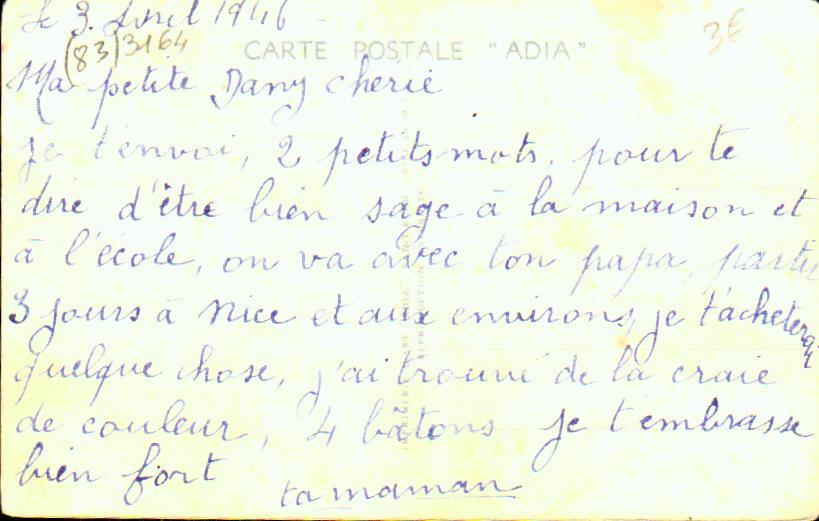 Le 3. Avril 1946
(83) 3164
3€
CARTE POSTALE "ADIA"
Ma petite Dany cherie
je t'envoi, 2 petits mots. pour te
dire d'être bien sage à la maison et
à l'école, on va avec ton papa, partir
3 jours à Nice et aux environs, je t'acheterai
quelque chose, j'ai trouvé de la craie
de couleur, 4 bâtons je t'embrasse
bien fort
ta maman